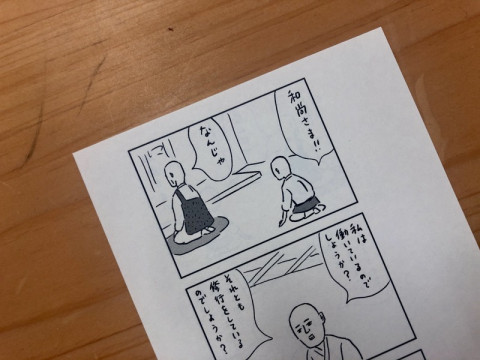 和尚さま!!
なんじゃ
私は
働いているので
しょうか?
それとも
修行をしている
のでしょうか?